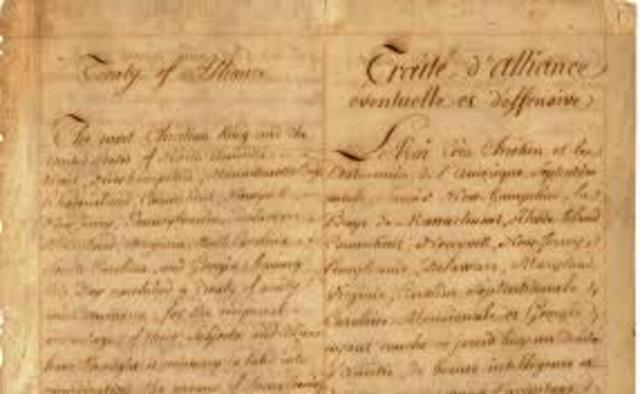 Treaty of Alliance
The most Christian King and the
United States of North America
Newhampshire, Massachusetts Bay
Rhodeisland, Connecticut, Newyork
New Jersey, Pennsylvania, Delaware
Maryland, Virginia, North Carolina
South Carolina, and Georgia, having
this Day concluded a Treaty of amity
and Commerce, for the reciprocal
advantage of their Subjects and
have thought it necessary to take into
the means of
Traité d'alliance
eventuelle et deffensive
Le Roi très Chrétien et les
Etats unis de l'amerique Septentrio
New Hampshire, la
Baye de Massachuset, Rhode Island
Connecticut, Newyork, New Jersey
Pensylvanie, Delaware, Maryland
Virginie, Caroline Septentrionale
Caroline Meridionale et Georgie
ayant conclu ce jourd'huy un traité
d'amitié de bonne intelligence et